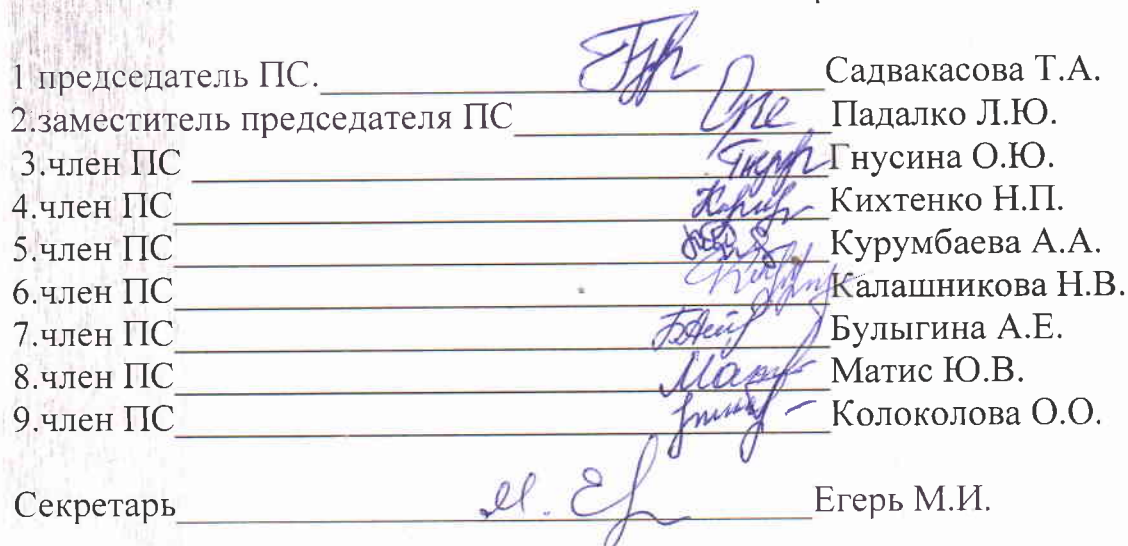 1 председатель ПС.____________ Садвакасова Т.А.
2.заместитель председателя ПС____________ Падалко Л.Ю.
3.член ПС ____________ Гнусина О.Ю.
4.член ПС____________ Кихтенко Н.П.
5.член ПС____________ Курумбаева А.А.
6.член ПС____________ Калашникова Н.В.
7.член ПС____________ Булыгина А.Е.
8.член ПС____________ Матис Ю.В.
9.член ПС____________ Колоколова О.О.
Секретарь____________ Егерь М.И.